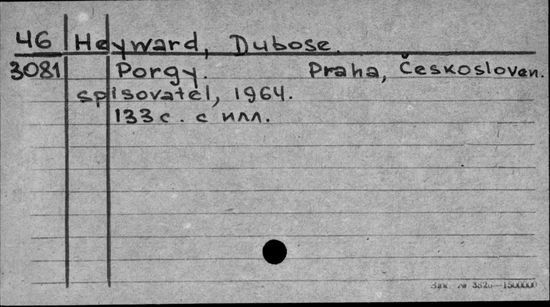 46 Heyward, Dubose.
3081 Porgy. Praha, Českosloven.
spisovatel, 1964.
133 с. с илл.
Зак. № 3820—1500000